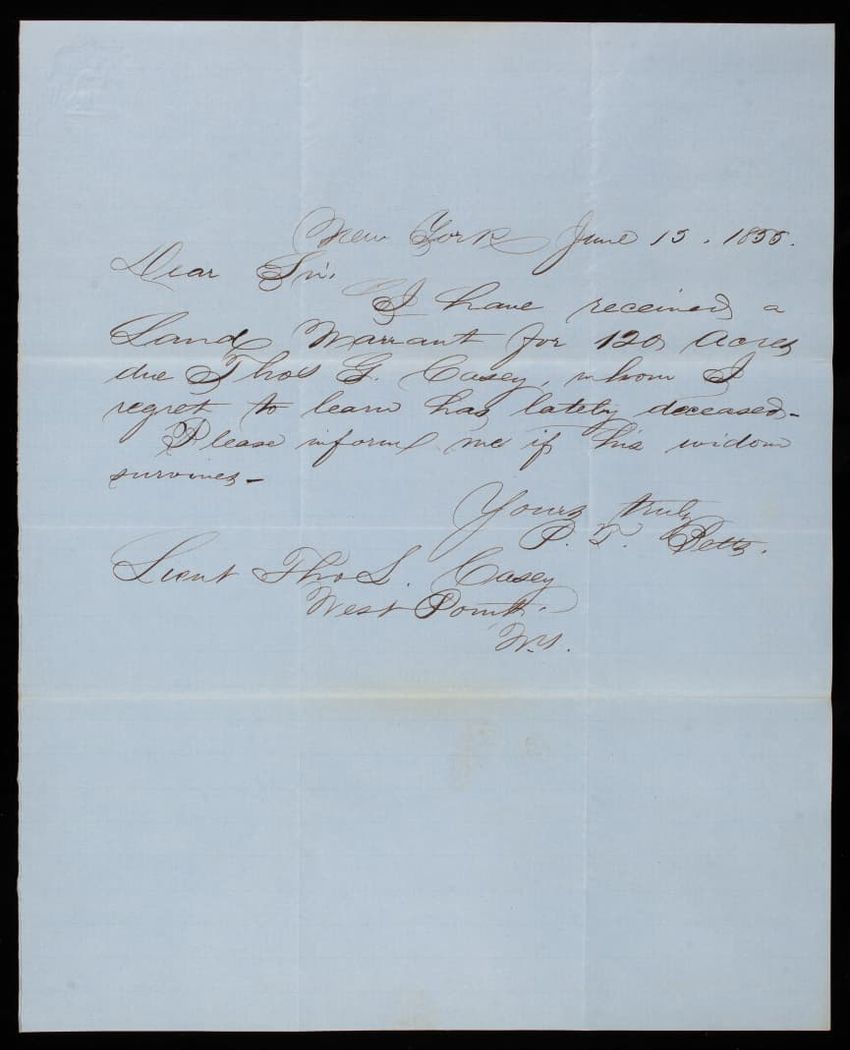 New York June 15. 1855.
Dear Sir,
I have received a
Land Warrant for 120 Acres
due Thos G. Casey, whom I
regret to learn has lately deceased-
Please inform me if his widow
survives-
Yours truly
P. T. Betts.
Lieut Tho L. Casey
West Point.
N.Y.